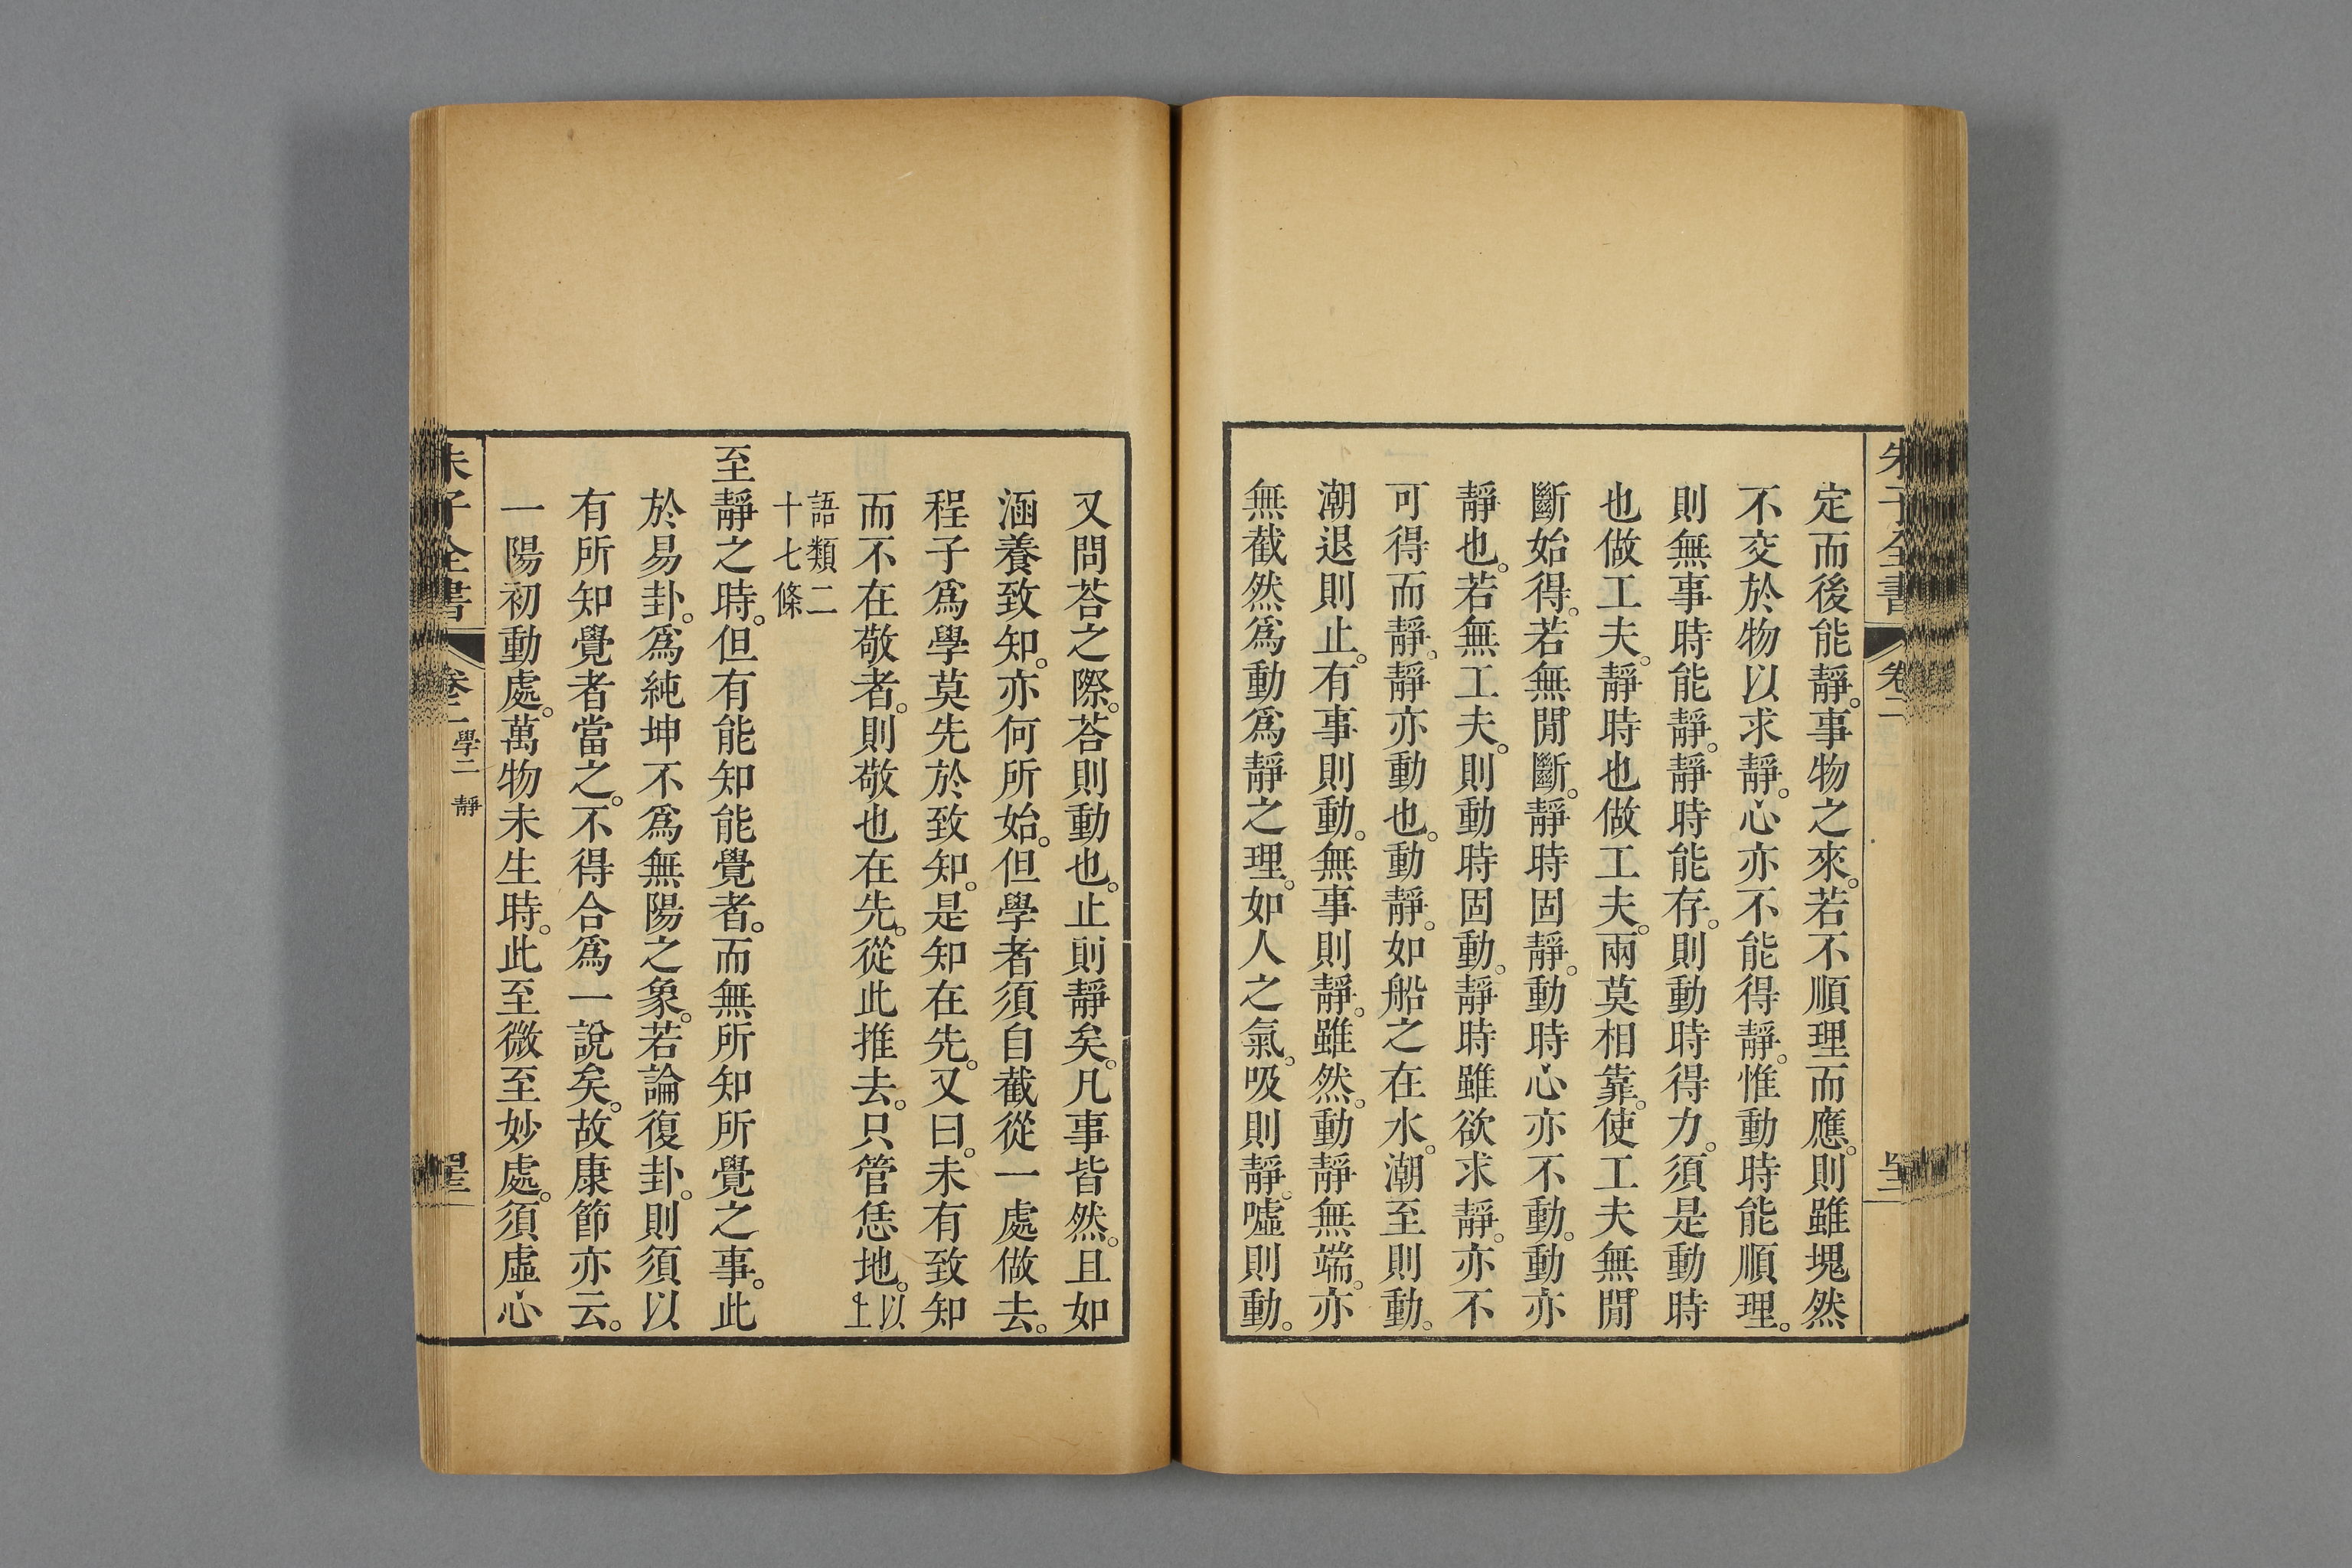 朱子全書 卷二
定而後能靜。事物之來。若不順理而應。則雖塊然
不交於物以求靜。心亦不能得靜。惟動時能順理。
則無事時能靜。靜時能存。則動時得力。須是動時
也做工夫。靜時也做工夫。兩莫相靠。使工夫無閒
斷始得。若無閒斷。靜時固靜。動時心亦不動。動亦
靜也。若無工夫。則動時固動。靜時雖欲求靜。亦不
可得而靜。靜亦動也。動靜。如船之在水。潮至則動。
潮退則止。有事則動。無事則靜。雖然。動靜無端。亦
無截然爲動爲靜之理。如人之氣。吸則靜。噓則動。
又問荅之際。荅則動也。止則靜矣。凡事皆然。且如
涵養致知。亦何所始。但學者須自截從一處做去。
程子爲學莫先於致知。是知在先。又曰。未有致知
而不在敬者。則敬也在先。從此推去。只管恁地。以上
語類二十七條
至靜之時。但有能知能覺者。而無所知所覺之事。此
於易卦。爲純坤不爲無陽之象。若論復卦。則須以
有所知覺者當之。不得合爲一說矣。故康節亦云。
一陽初動處。萬物未生時。此至微至妙處。須虛心
朱子全書 卷二 學二 靜